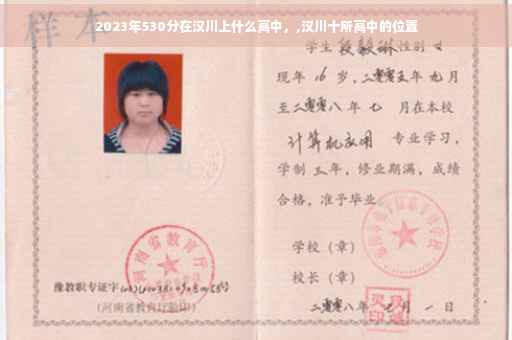 2023年530分在汉川上什么高中，,汉川十所高中的位置
样本
学生 段毅琳 性别 女
现年 16 岁，二零零五年 九月
至二零零八年 七 月在本校
计算机应用 专业学习，
学制 三年，修业期满，成绩
合格，准予毕业
学校（章）
校长（章）
二零零八年 七月 一日
河南省教育厅
豫教职专证字
（河南省教育厅验印）